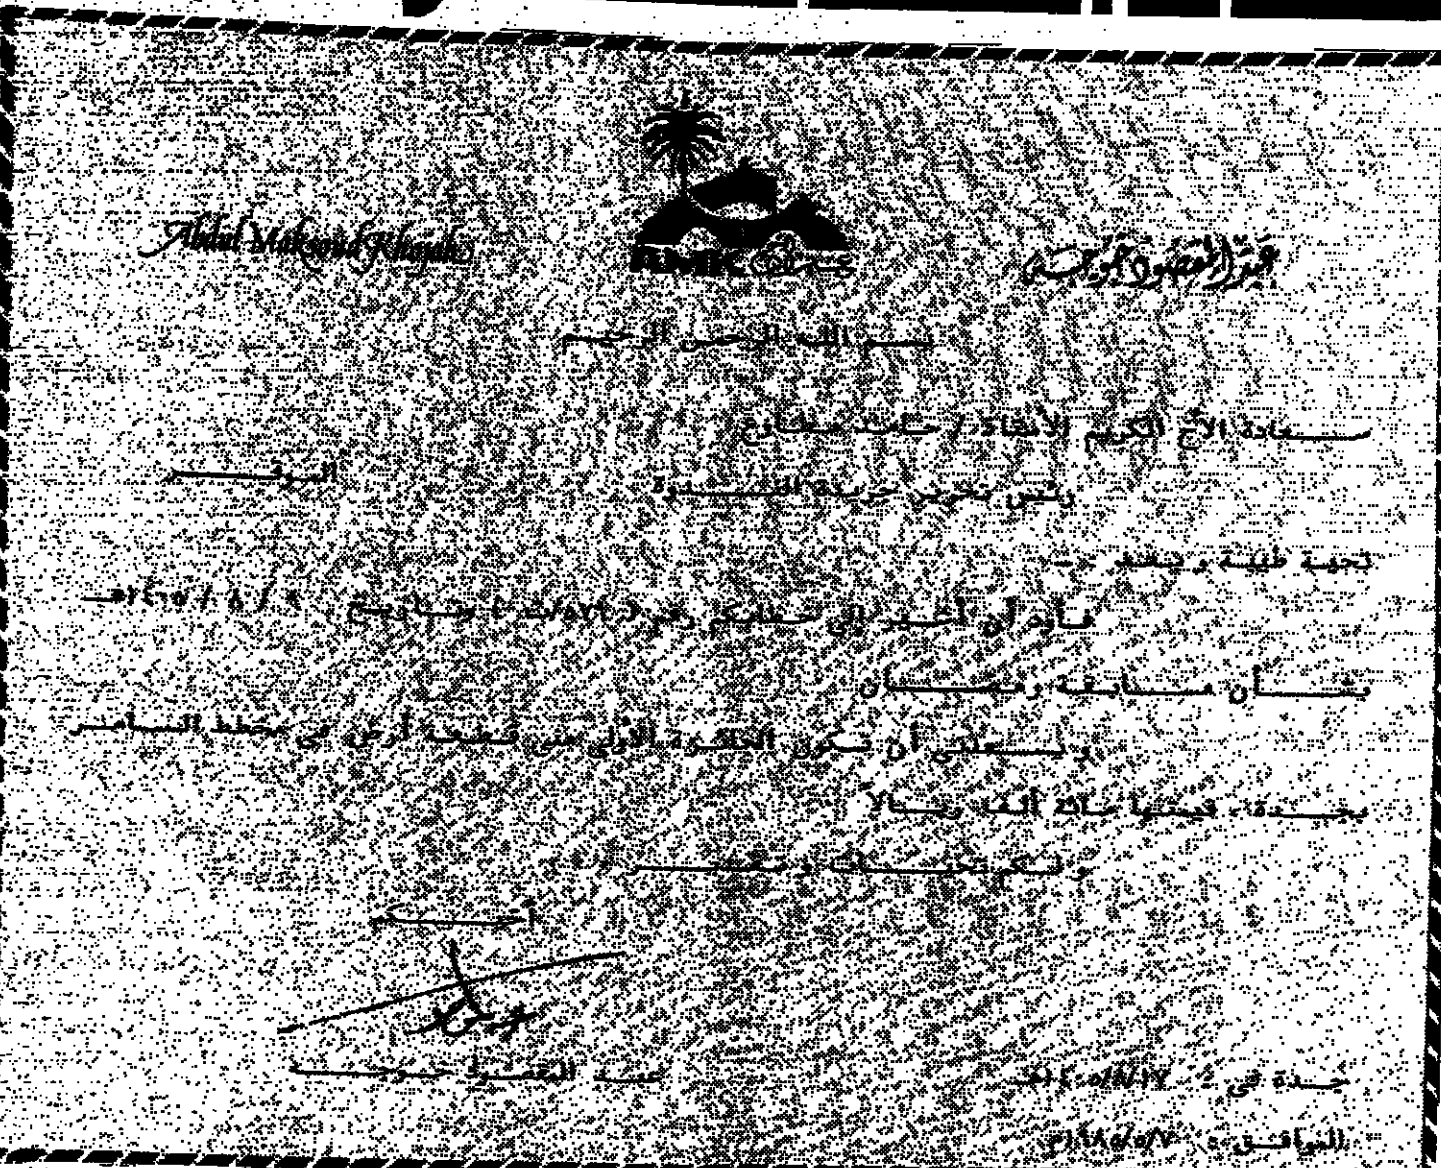 Abdul Maksoud Khojah
عبد المقصود خوجه
AMK
بسم الله الرحمن الرحيم
سعادة الأخ الكريم الأستاذ / حامد مطاوع
رئيس تحرير جريدة الندوة
الموقر
تحية طيبة وبعد -
فأود أن أشير إلى خطابكم رقم وتاريخ / ٨ / ١٤٠٥هـ
بشأن مسابقة رمضان
يسعدني أن تكون الجائزة الأولى مني قطعة أرض في مخطط
بجدة - قيمتها مائة ألف ريالاً
ولكم تحياتي وتقديري
عبد المقصود خوجه
جدة في : ١٤٠٥/٨/١٧هـ
الموافق : ١٩٨٥/٥/٧م